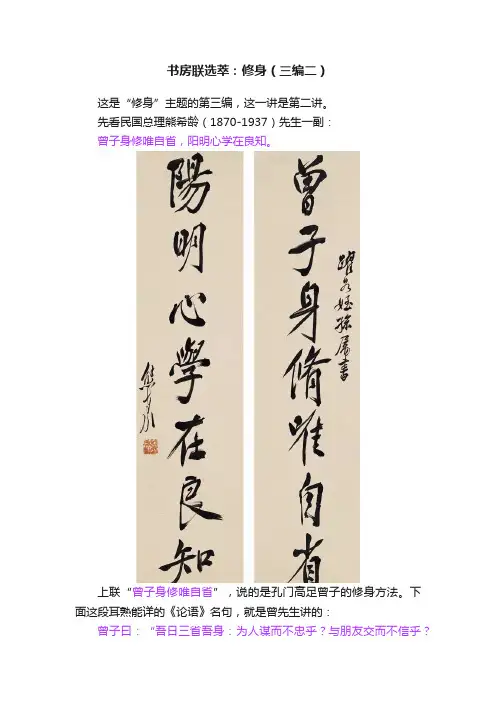 书房联选萃：修身（三编二）
这是“修身”主题的第三编，这一讲是第二讲。
先看民国总理熊希龄（1870-1937）先生一副：
曾子身修唯自省，阳明心学在良知。
曾子身脩唯自省
陽明心學在良知
上联“曾子身修唯自省”，说的是孔门高足曾子的修身方法。下
面这段耳熟能详的《论语》名句，就是曾先生讲的：
曾子曰：“吾日三省吾身：为人谋而不忠乎？与朋友交而不信乎？